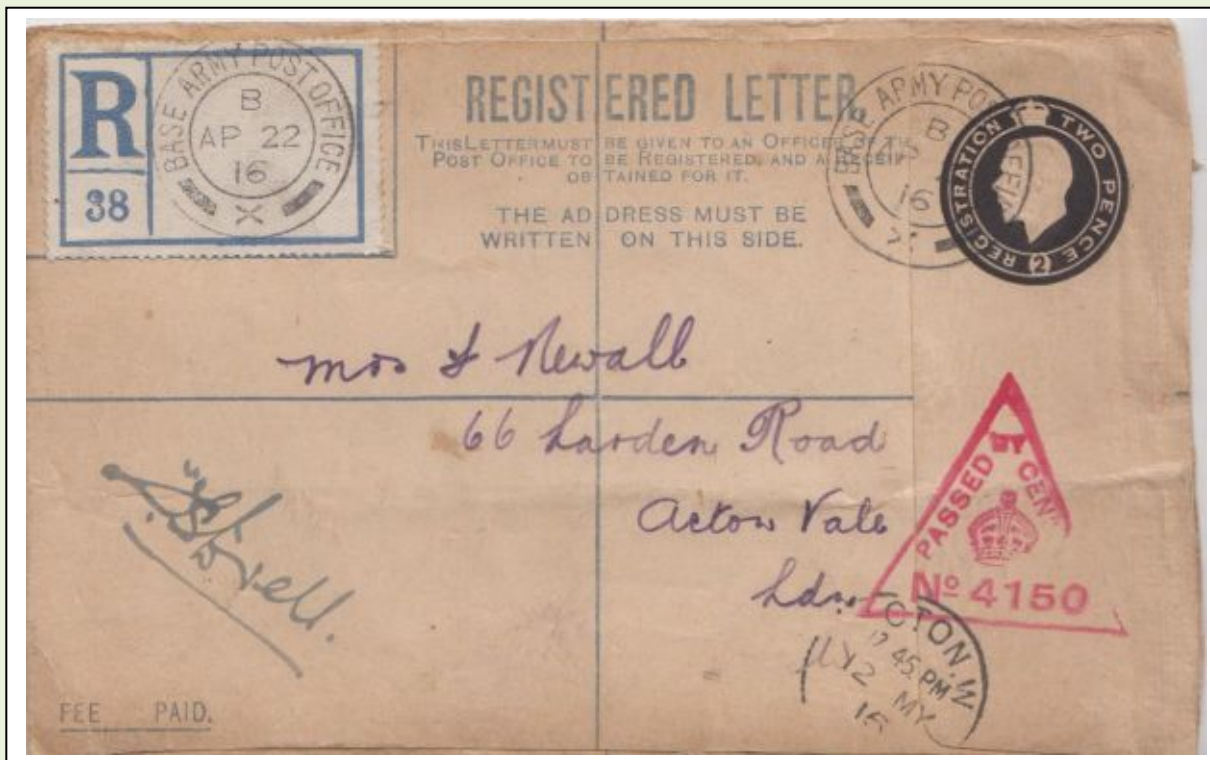 R
38
BASE ARMY POST OFFICE
B
AP 22
16
X
REGISTERED LETTER.
THIS LETTER MUST BE GIVEN TO AN OFFICER OF THE
POST OFFICE TO BE REGISTERED, AND A RECEIPT
OBTAINED FOR IT.
THE ADDRESS MUST BE
WRITTEN ON THIS SIDE.
BASE ARMY PO
B
16
REGISTRATION TWO PENCE (2)
Mrs Newall
66 Larden Road
Acton Vale
Ldn
PASSED BY CEN
No 4150
CTON.W
45 PM
2 MY
16
FEE PAID.